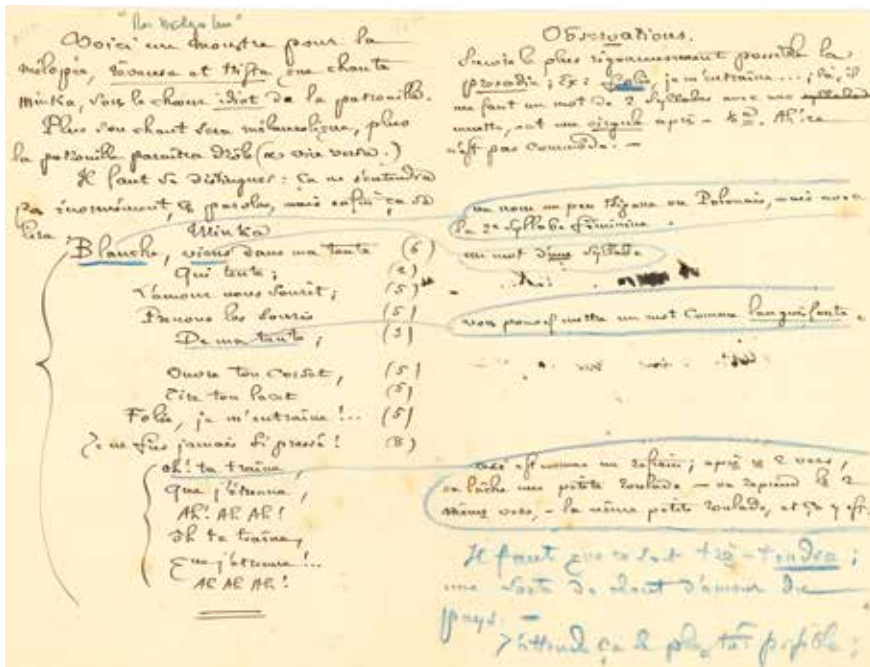 Voici un monstre pour la
mélopée, rêveuse et triste, que chante
Minka, sous le chœur idiot de la patrouille.
Plus son chant sera mélancolique, plus
la patrouille paraîtra drôle (et vice versa.)
Il faut se distinguer : Ça ne s'entendra
pas énormément, les paroles, mais enfin, ça se
lira.
Minka
Blanche, viens dans ma tente (6)
Qui tente ; (2)
L'amour nous sourit ; (5)
Prenons les souris (5)
De ma tante ; (3)
Ouvre ton corset, (5)
Tire ton lacet (5)
Folie, je m'entraîne !... (5)
Je ne fus jamais si pressé ! (8)
Oh ! ta traîne,
Que j'étrenne,
Ah ! Ah Ah !
Oh ta traîne,
Que j'étrenne !...
Ah Ah Ah !
Observations.
Suivre le plus rigoureusement possible la
prosodie ; Ex : Folie, je m'entraîne... ; là, il
me faut un mot de 2 syllabes avec une syllabe
muette, et une virgule après. Ah ! ce
n'est pas commode. —
un nom un peu tzigane ou Polonais, mais avec
la 2e syllabe féminine.
un mot d'une syllabe
vous pouvez mettre un mot comme languissante.
ceci est comme un refrain ; après ces 2 vers,
on lâche une petite roulade — on reprend les 2
mêmes vers, — la même petite roulade, et ça y est.
Il faut que ce soit très-tendre ;
une sorte de chant d'amour du
pays. —
J'attends ça le plus tôt possible ;